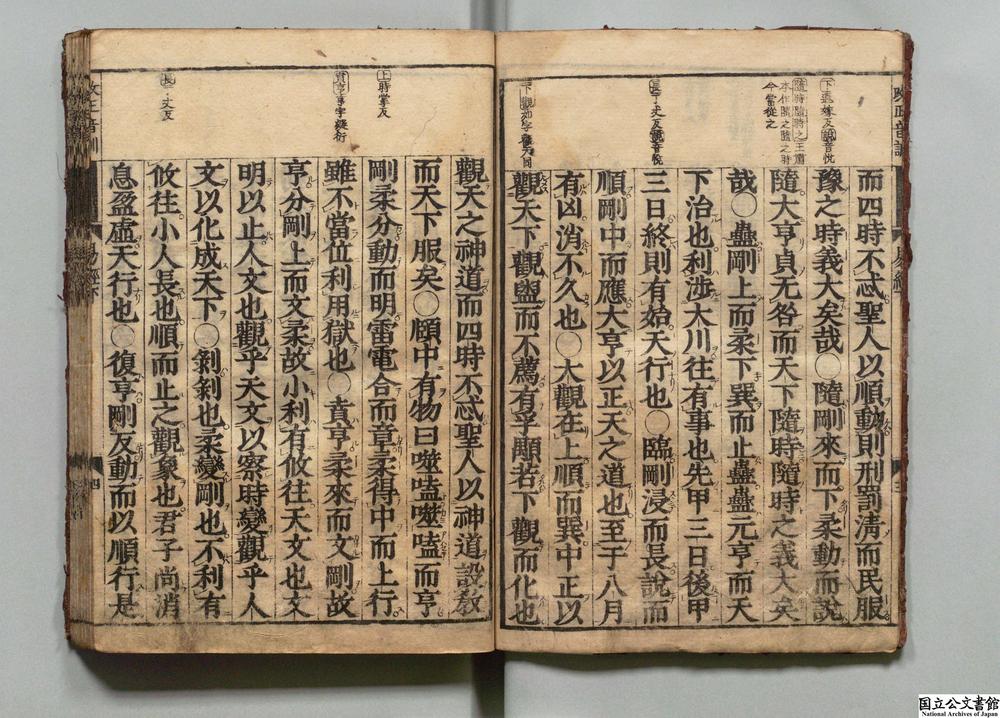 下遐嫁反説音悦
隨時隨時之王肅
本作隨之隨之時
今當從之
長丁丈反説音悦
而四時不忒聖人以順動則刑罰清而民服
豫之時義大矣哉○隨剛來而下柔動而說
隨大亨貞无咎而天下隨時隨時之義大矣
哉○蠱剛上而柔下巽而止蠱蠱元亨而天
下治也利涉大川往有事也先甲三日後甲
三日終則有始天行也○臨剛浸而長說而
順剛中而應大亨以正天之道也至于八月
有凶消不久也○大觀在上順而巽中正以
觀天下觀盥而不薦有孚顒若下觀而化也
上時掌反
賁亨亨字疑衍
長丁丈反
觀天之神道而四時不忒聖人以神道設教
而天下服矣○頤中有物曰噬嗑噬嗑而亨
剛柔分動而明雷電合而章柔得中而上行
雖不當位利用獄也○賁亨柔來而文剛故
亨分剛上而文柔故小利有攸往天文也文
明以止人文也觀乎天文以察時變觀乎人
文以化成天下○剝剝也柔變剛也不利有
攸往小人長也順而止之觀象也君子尚消
息盈虛天行也○復亨剛反動而以順行是
国立公文書館
National Archives of Japan